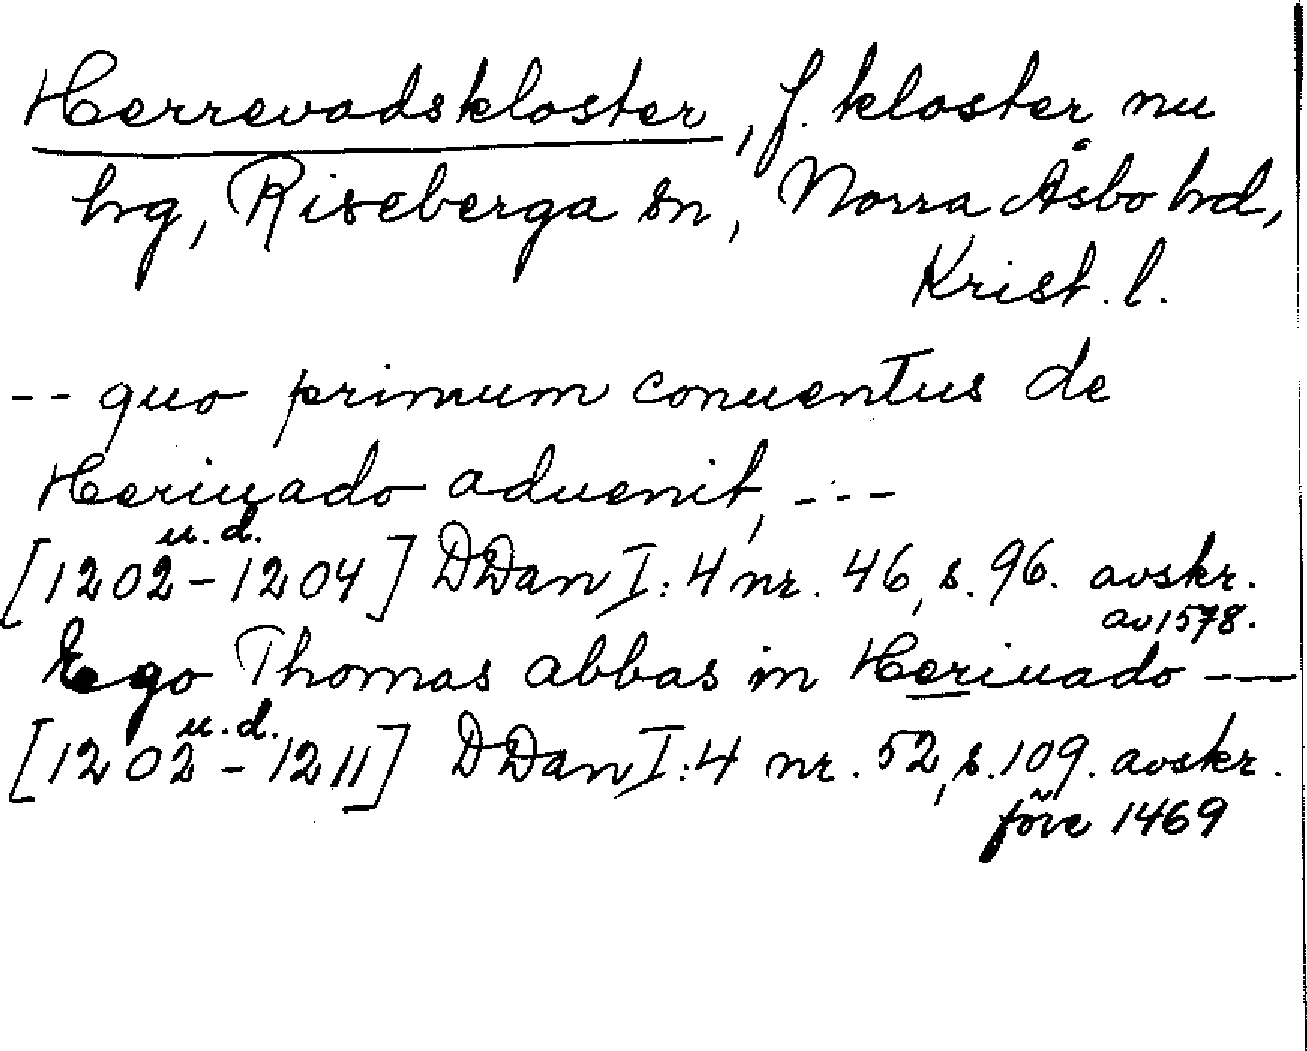 Herrevadskloster, f. kloster nu
hg, Riseberga sn, Norra Åsbo hd,
Krist. l.
-- quo primum conuentus de
Heriuado aduenit, ---
u.d.
[1202-1204] DDan I:4 nr. 46, s. 96. avskr.
av 1578.
Ego Thomas abbas in Heriuado ---
u.d.
[1202-1211] DDan I:4 nr. 52, s. 109. avskr.
före 1469